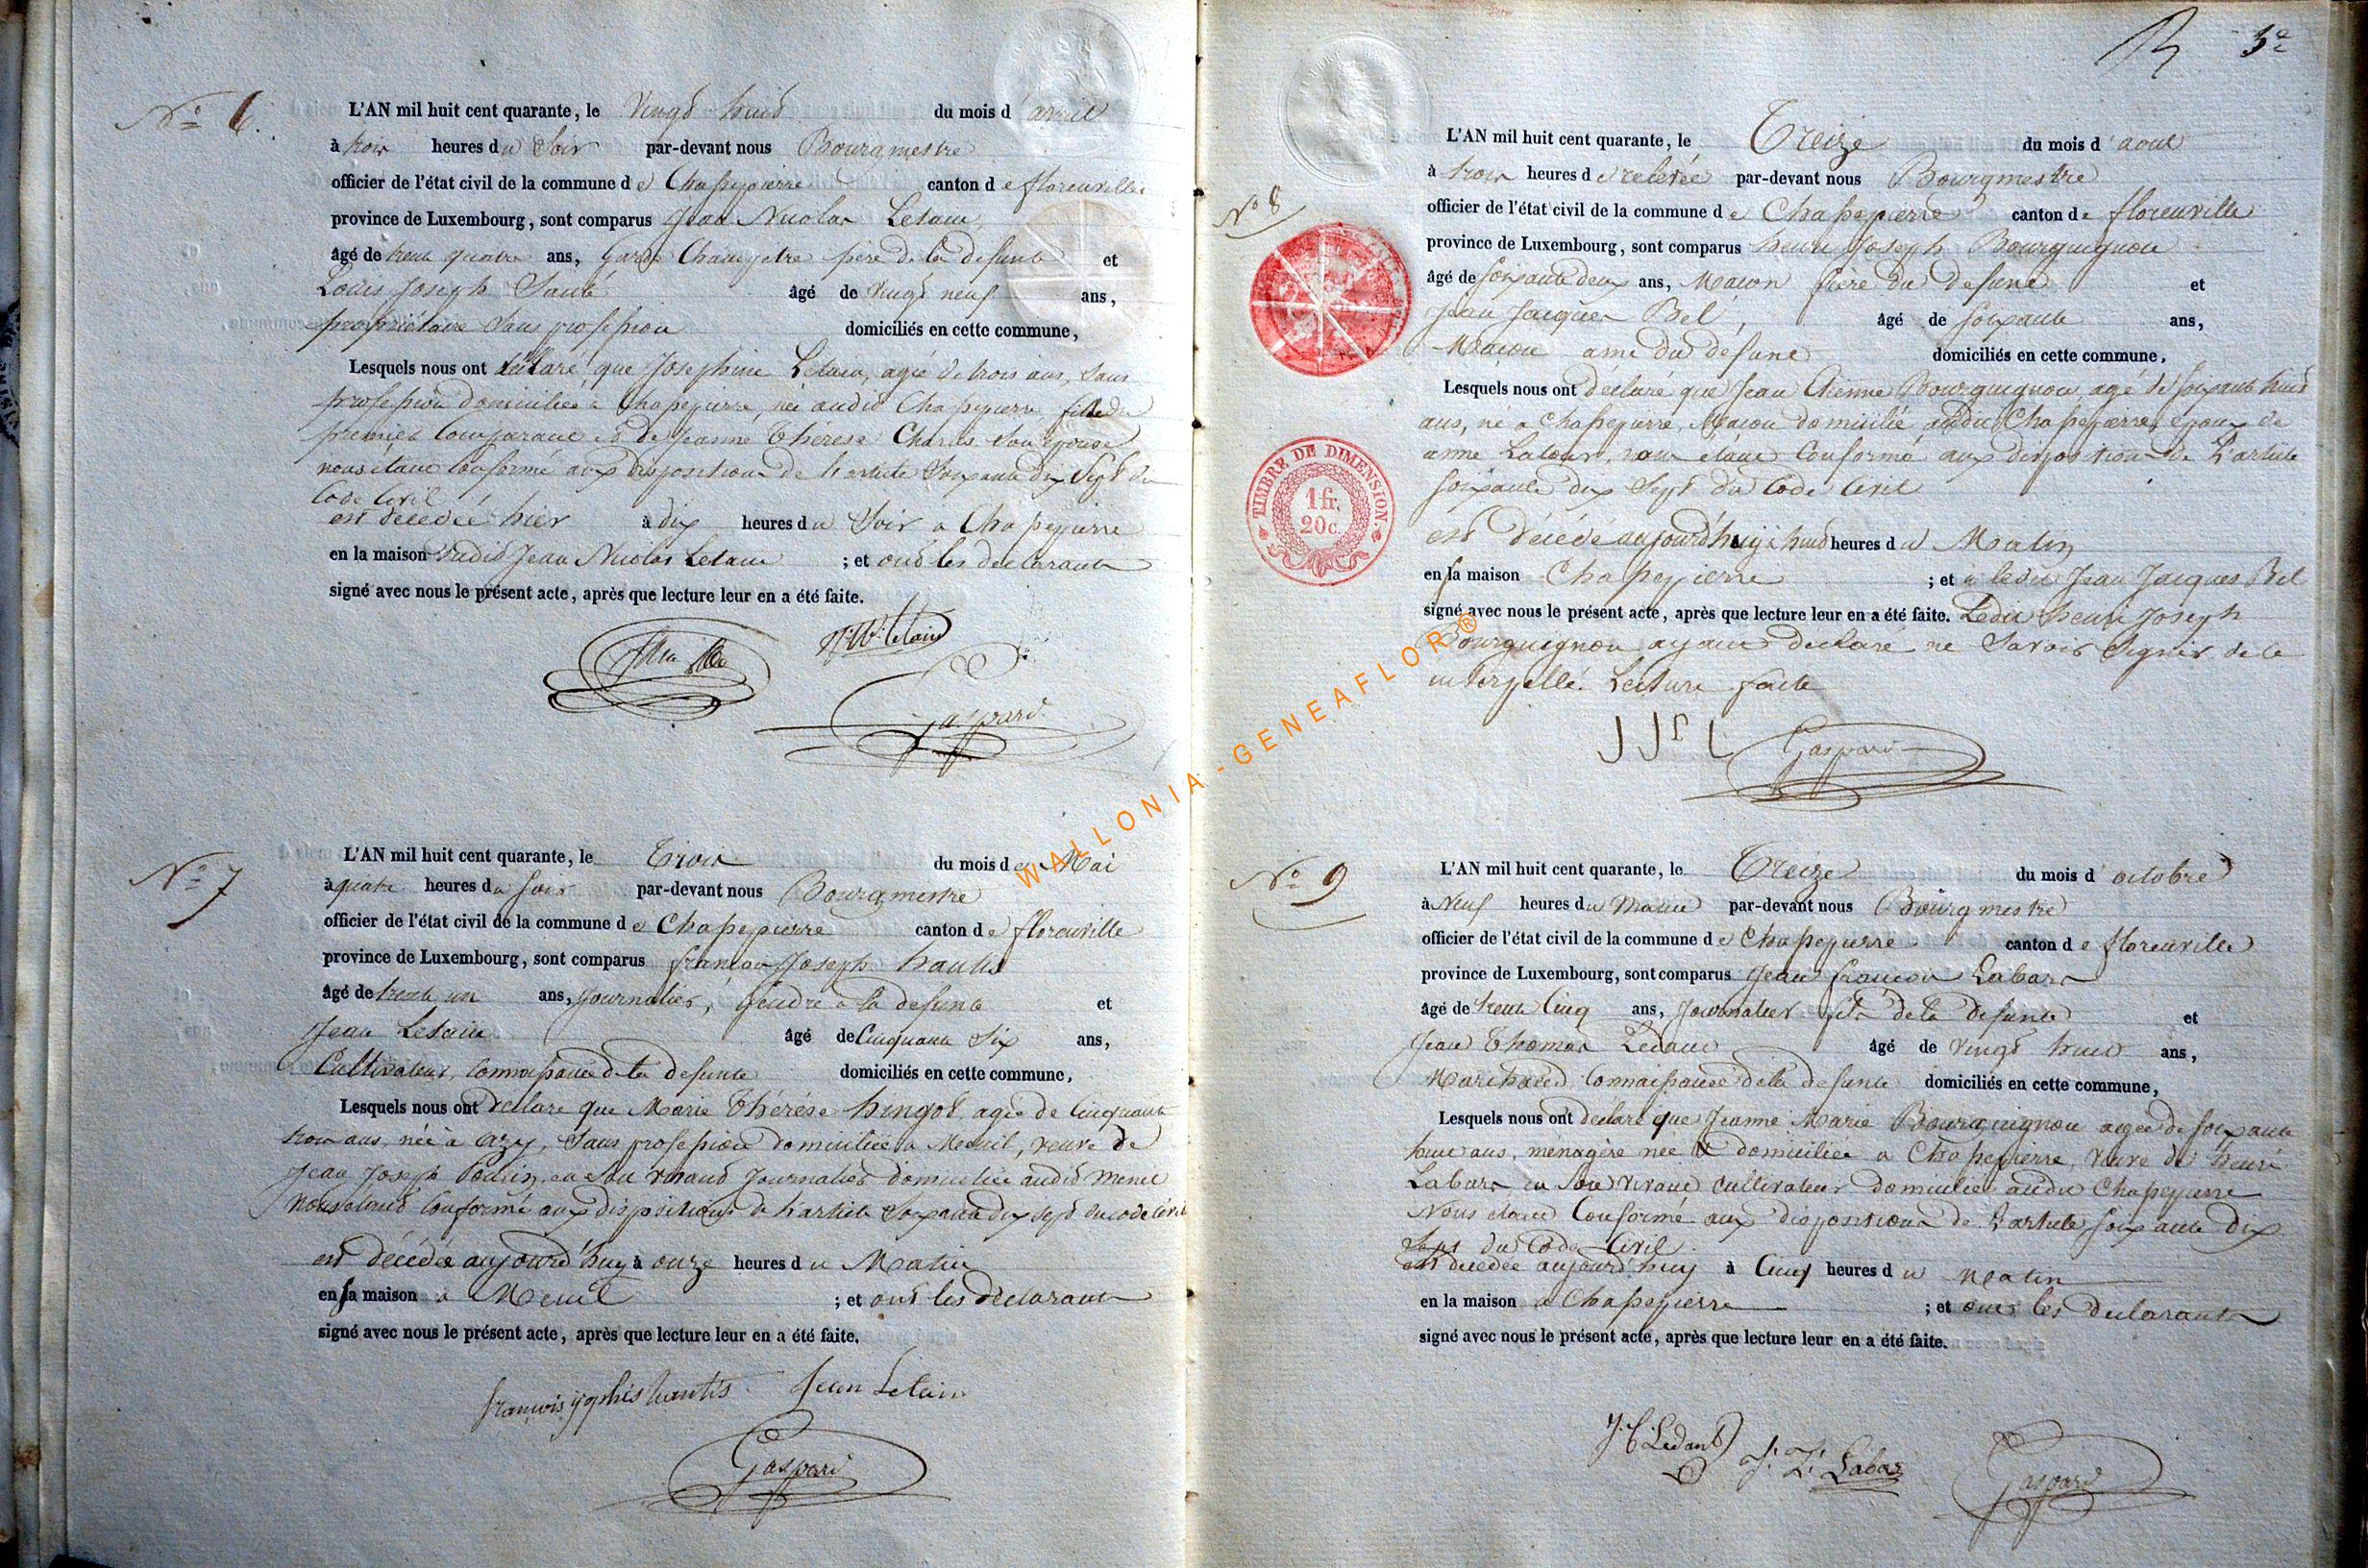 Nº 6.
L'AN mil huit cent quarante, le vingt huit du mois d'avril
à trois heures du Soir par-devant nous Bourgmestre
officier de l'état civil de la commune de Chassepierre canton de florenville
province de Luxembourg, sont comparus Jean Nicolas Letain
âgé de trente quatre ans, Garde Champetre père de la defunte et
Louis Joseph âgé de vingt neuf ans,
propriétaire sans profession domiciliés en cette commune,
Lesquels nous ont déclaré que Josephine Letain, agée de trois ans, sans
profession domiciliée à Chassepierre, née audit Chassepierre, fille du
premier Comparant et de Jeanne Thérese Charles son épouse
nous étant Conformé aux dispositions de l'article soixante dix sept du
Code Civil
est décédée hier à dix heures du Soir a Chassepierre
en la maison dudit Jean Nicolas Letain ; et ont les declarants
signé avec nous le présent acte, après que lecture leur en a été faite.
Gaspard
Nº 7
L'AN mil huit cent quarante, le Trois du mois de Mai
à quatre heures du soir par-devant nous Bourgmestre
officier de l'état civil de la commune de Chassepierre canton de florenville
province de Luxembourg, sont comparus françois Joseph hautis
âgé de trente un ans, Journalier, gendre à la defunte et
Jean Letain âgé de Cinquante Six ans,
Cultivateur, Connaissance de la defunte domiciliés en cette commune,
Lesquels nous ont déclaré que Marie Thérése hingot, agée de Cinquante
trois ans, née à azy, sans profession domiciliée a Menil, veuve de
Jean Joseph en son vivant Journalier domicilié audit menil
nous étant Conformé aux dispositions de l'article soixante dix sept du code Civil
est décédée aujourd'huy à onze heures du Matin
en sa maison a Menil ; et ont les déclarants
signé avec nous le présent acte, après que lecture leur en a été faite.
françois hautis Jean Letain
Gaspard
3e
Nº 8
L'AN mil huit cent quarante, le Treize du mois d'aout
à trois heures de relevée par-devant nous Bourgmestre
officier de l'état civil de la commune de Chassepierre canton de florenville
province de Luxembourg, sont comparus henri Joseph Bourguignon
âgé de soixante deux ans, Macon frère du defunt et
Jean Jacques Bel, âgé de soixante ans,
Macon ami du defunt domiciliés en cette commune,
Lesquels nous ont déclaré que Jean Etienne Bourguignon, agé de soixante huit
ans, né a Chassepierre, Macon domicilié audit Chassepierre, époux de
anne Latour, nous étant Conformé aux dispositions de L'article
soixante dix sept du Code Civil
est décédé aujourd'huy à huit heures du Matin
en sa maison Chassepierre ; et a ledit Jean Jacques Bel
signé avec nous le présent acte, après que lecture leur en a été faite. Ledit henri Joseph
Bourguignon ayant declaré ne Savoir Signer de ce
interpellé. Lecture faite
Gaspard
TIMBRE DE DIMENSION.
1 fr.
20c.
Nº 9
L'AN mil huit cent quarante, le Treize du mois d'octobre
à Neuf heures du Matin par-devant nous Bourgmestre
officier de l'état civil de la commune de Chassepierre canton de florenville
province de Luxembourg, sont comparus Jean françois Labar
âgé de trente Cinq ans, Journalier fils de la defunte et
Jean Thomas Ledant âgé de vingt huit ans,
Marchand, Connaissance de la defunte domiciliés en cette commune,
Lesquels nous ont déclaré que Jeanne Marie Bourguignon agée de soixante
huit ans, ménagère née & domiciliée a Chassepierre, veuve de henri
Labar, en son vivant cultivateur domicilié audit Chassepierre
Nous étant Conformé aux dispositions de L'article soixante dix
sept du Code Civil.
est decedée aujourd'huy à Cinq heures du Matin
en la maison a Chassepierre ; et ont les declarants
signé avec nous le présent acte, après que lecture leur en a été faite.
Ledant Labar
Gaspard
WALLONIA - GENEAFLOR ®